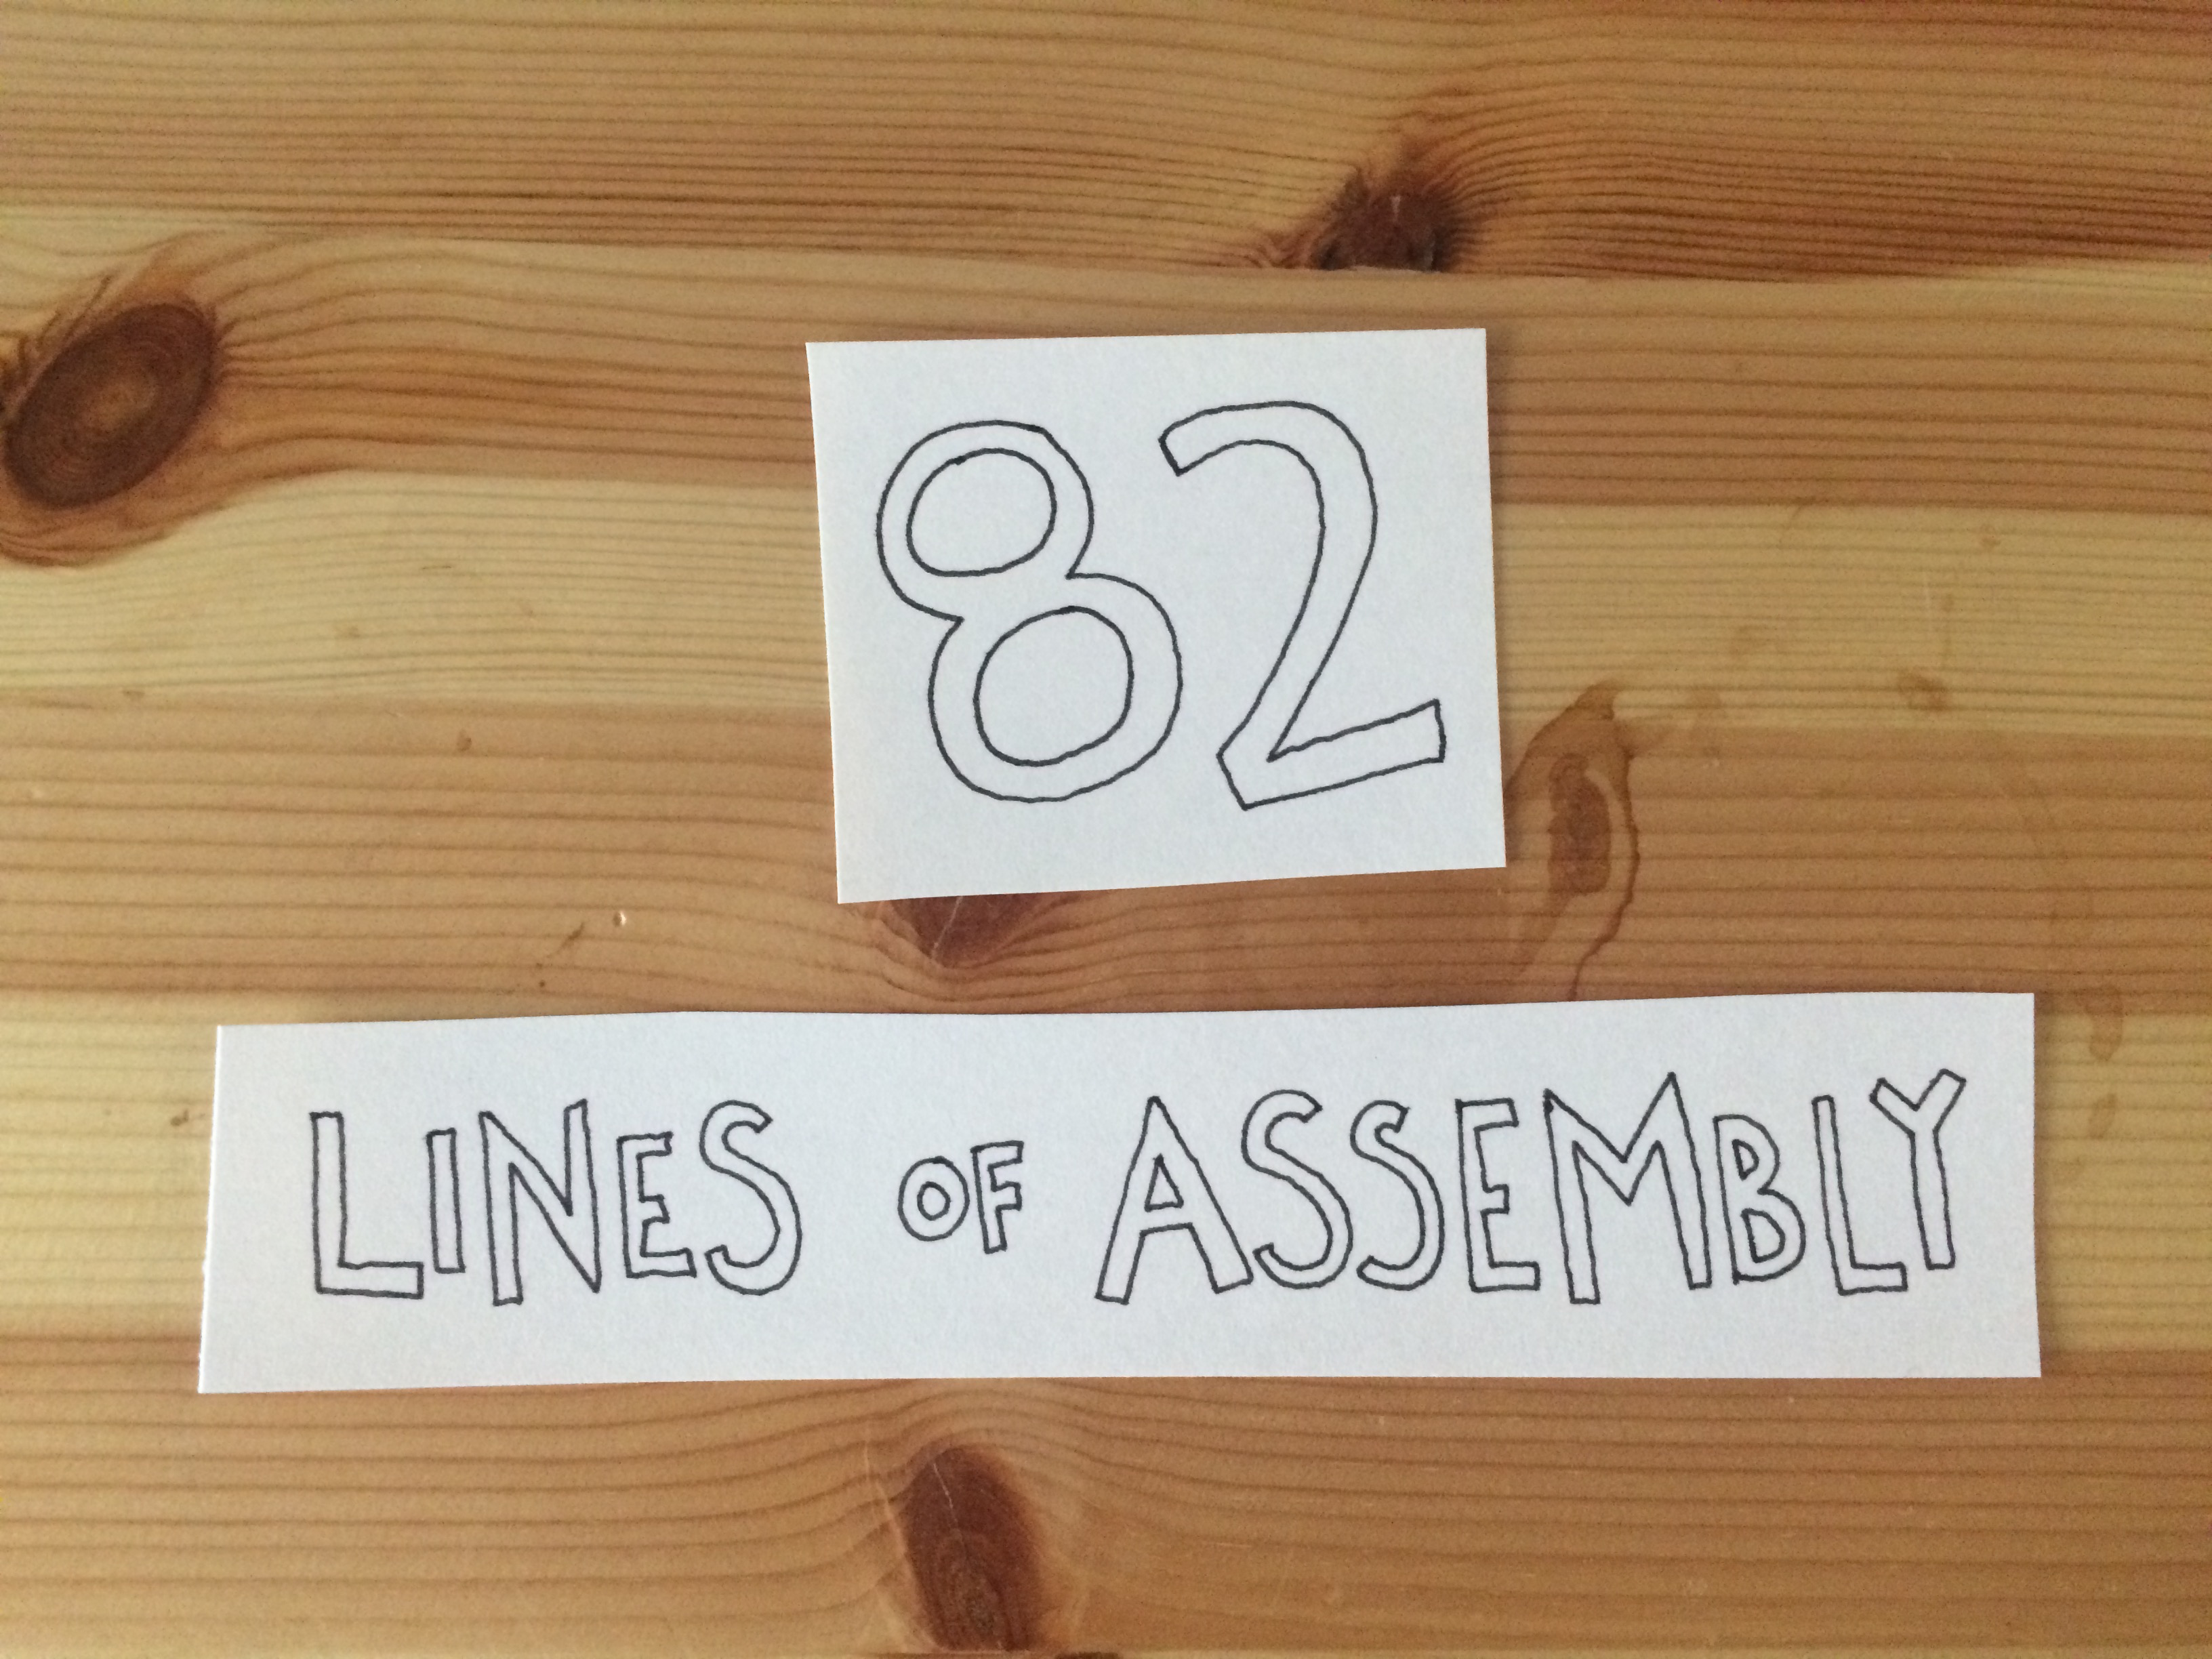 82
LINES OF ASSEMBLY